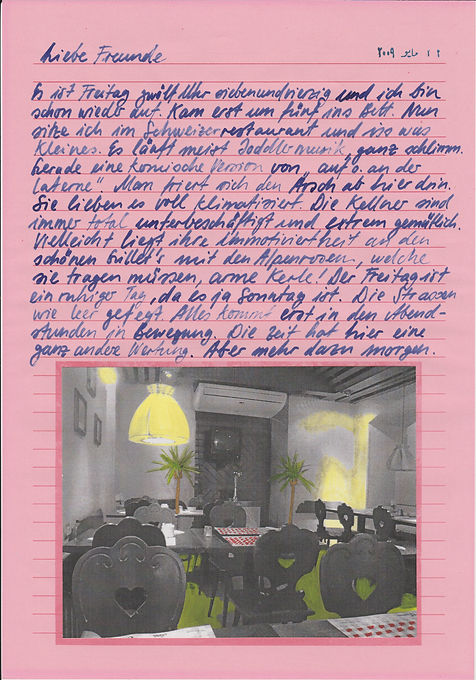 Liebe Freunde
٢٢ مايو ٢٠٠٩
Es ist Freitag zwölf Uhr siebenundvierzig und ich bin
schon wieder auf. Kam erst um fünf ins Bett. Nun
sitze ich im Schweizerrestaurant und iss was
kleines. Es läuft meist Joddlermusik, ganz schlimm.
Gerade eine komische Version von „auf o. an der
Laterne". Man friert sich den Arsch ab hier drin.
Sie lieben es voll klimatisiert. Die Kellner sind
immer total unterbeschäftigt und extrem gemütlich.
Vielleicht liegt ihre Unmotiviertheit an den
schönen Gillet's mit den Alpenrosen, welche
sie tragen müssen, arme Kerle! Der Freitag ist
ein ruhiger Tag, da es ja Sonntag ist. Die Strassen
wie leer gefegt. Alles kommt erst in den Abend-
stunden in Bewegung. Die Zeit hat hier eine
ganz andere Wertung. Aber mehr dazu morgen.